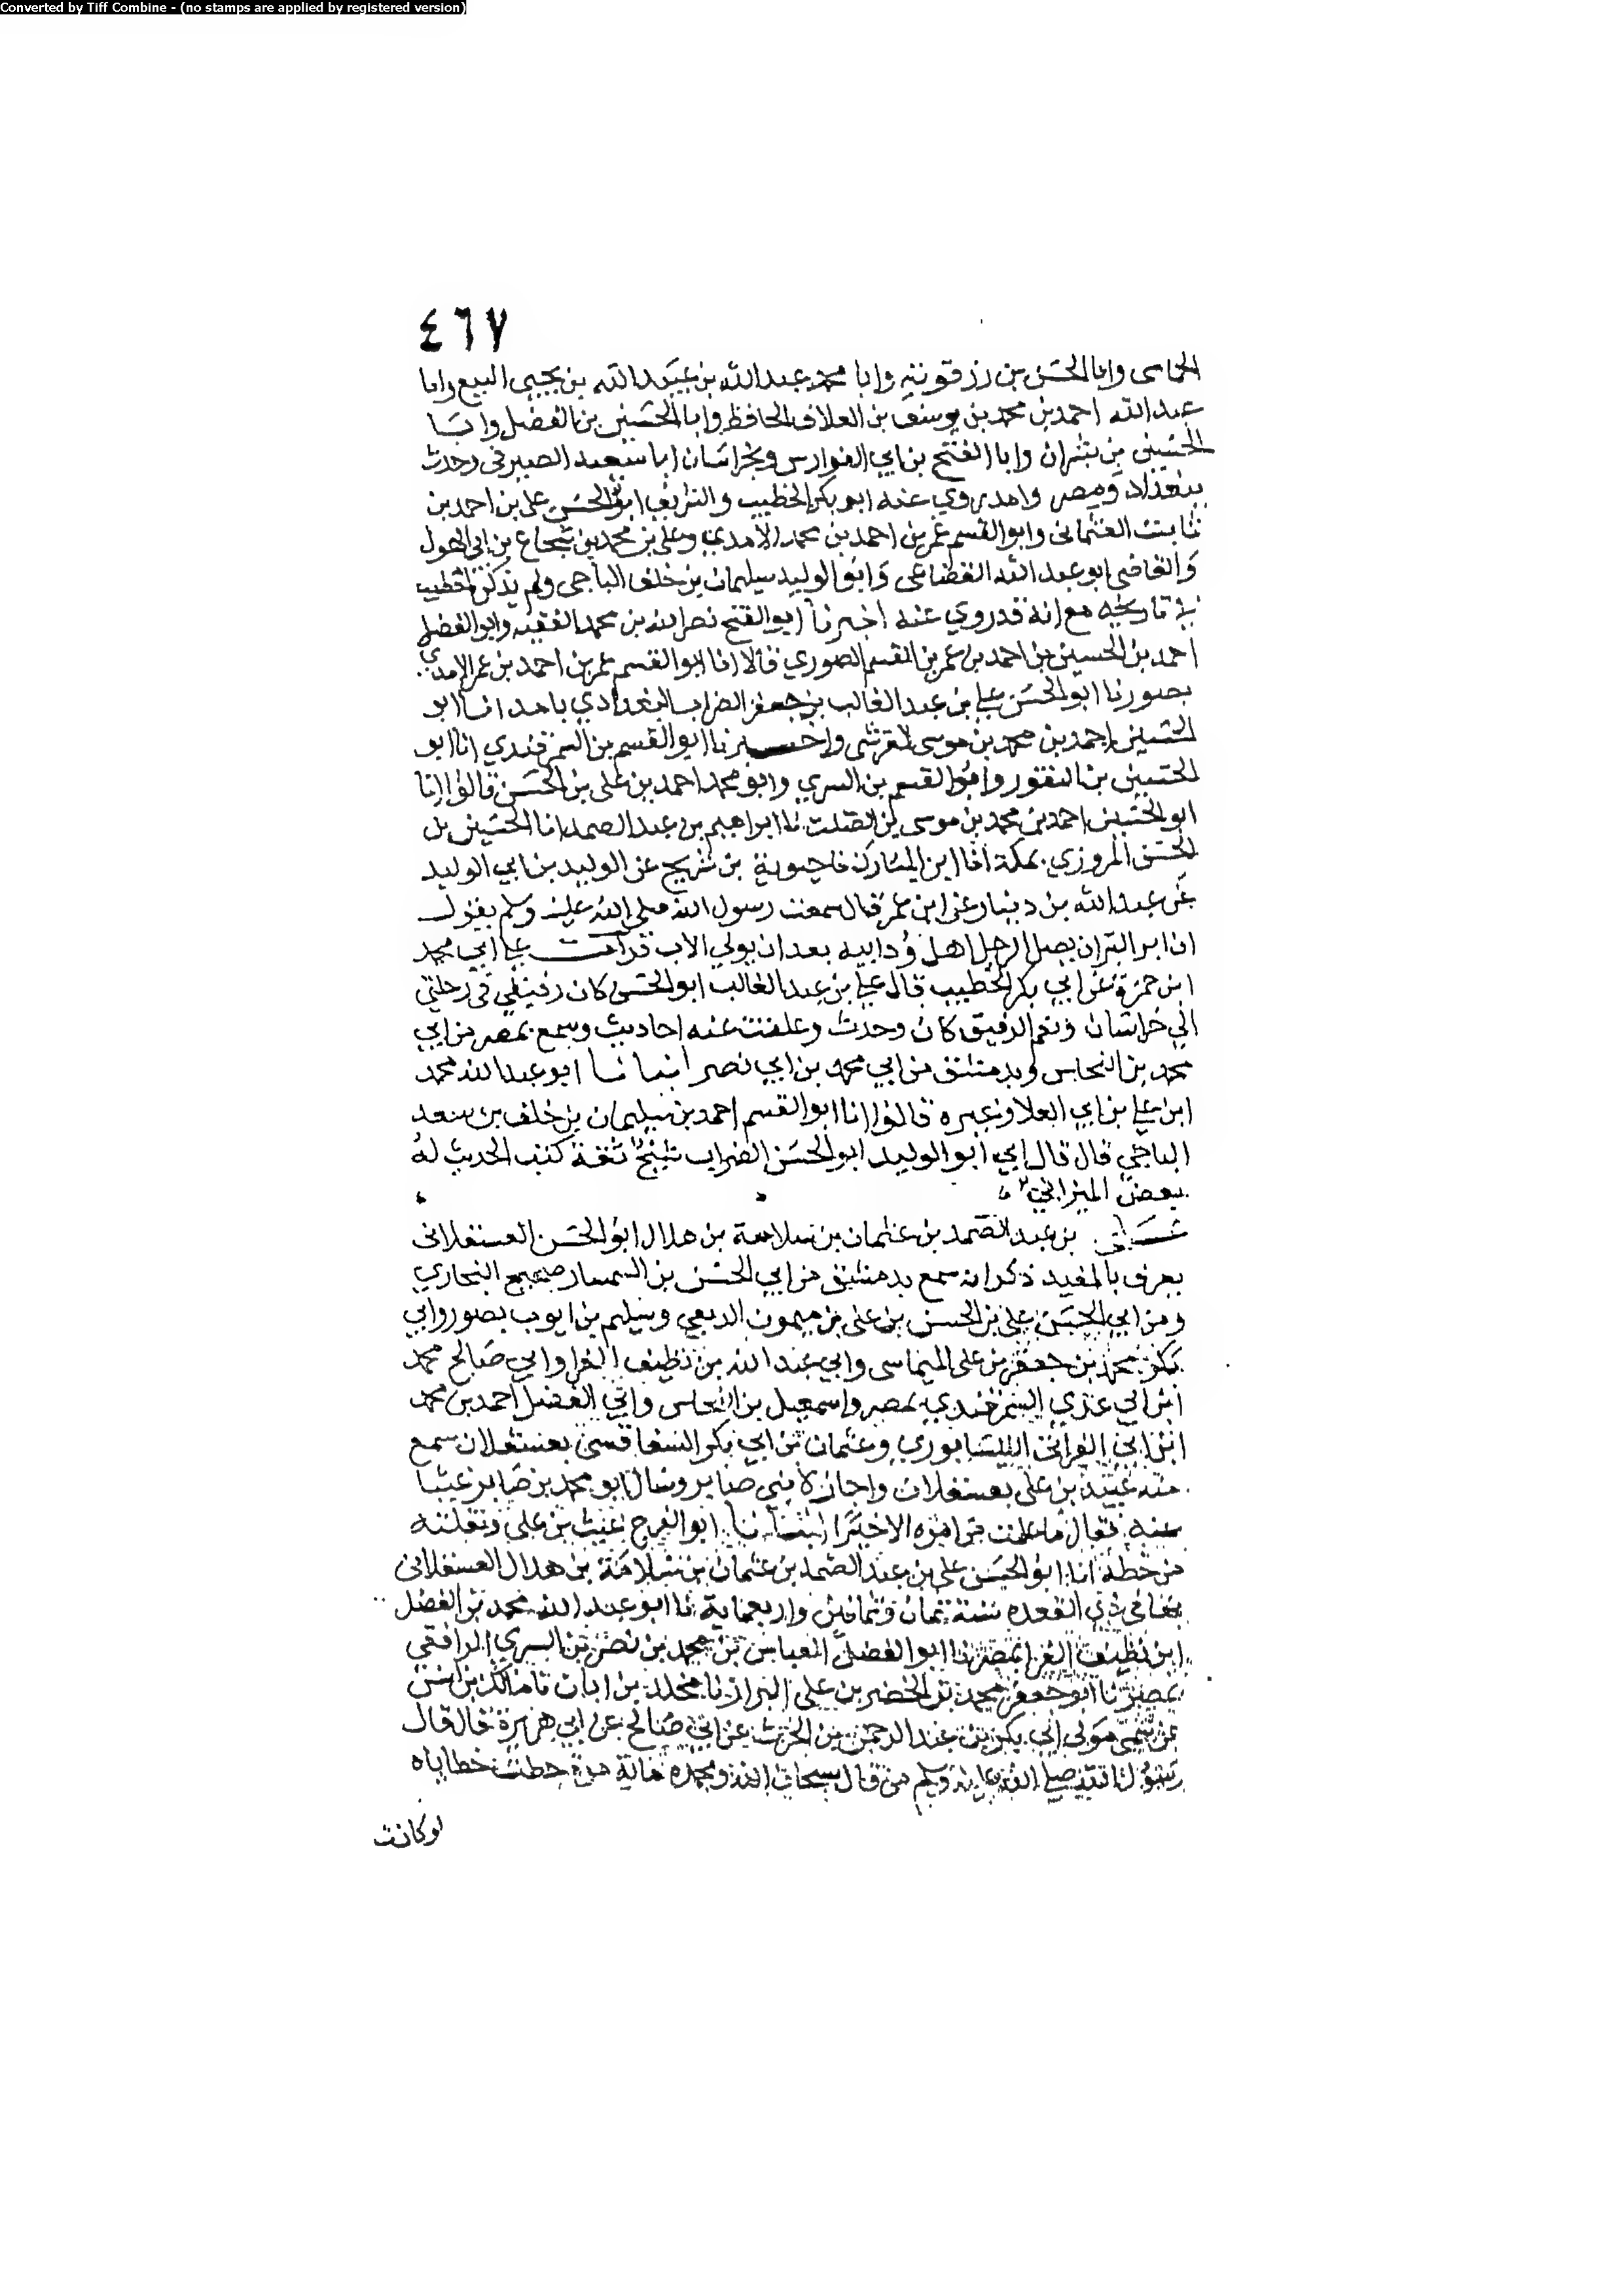 Converted by Tiff Combine - (no stamps are applied by registered version)
٤٦٧
الحماسى وابا الحسن بن رزقويه وابا محمد عبدالله بن عبيدالله بن يحيى البيع وابا
عبدالله احمد بن محمد بن يوسف بن العلاف الحافظ وابا الحسين بن الفضل وابا
الحسين بن بشران وابا الفتح بن ابي الفوارس وبخراسان ابا سعيد الصيرفى وحدث
ببغداد ومصر وامد روي عنه ابو بكر الخطيب والشريف ابو الحسن على بن احمد بن
ثابت العثمانى وابو القسم عمر بن احمد بن محمد الامدي وعلى بن محمد بن شجاع بن ابي الهول
والقاضى ابو عبد الله القضاعى وابو الوليد سليمان بن خلف الباجى ولم يذكره الخطيب
في تاريخه مع انه قد روي عنه اخبرنا ابو الفتح نصر الله بن محمد الفقيه وابو الفضل
احمد بن الحسين بن احمد بن عمر بن القسم الصوري قالا انا ابو القسم عمر بن احمد بن عمر الامدي
بصور نا ابو الحسن علي بن عبد الغالب بن جعفر الضراب البغدادي بامد انا ابو
الحسين احمد بن محمد بن موسى القرشى واخبرنا ابو القسم بن السمرقندي انا ابو
الحسين بن النقور وابو القسم بن السري وابو محمد احمد بن على بن الحسن قالوا انا
ابو الحسين احمد بن محمد بن موسى بن الصلت نا ابراهيم بن عبد الصمد انا الحسين بن
الحسن المروزي بمكة انا ابن المبارك نا حيوية بن شريح عن الوليد بن ابي الوليد
عن عبد الله بن دينار عن ابن عمر قال سمعت رسول الله صلى الله عليه وسلم يقول
ان ابر البر ان يصل الرجل اهل ود ابيه بعد ان يولي الاب قرات علي ابي محمد
ابن حمزة عن ابي بكر الخطيب قال علي بن عبد الغالب ابو الحسن كان رفيقي في رحلتي
الي خراسان ونعم الرفيق كان وحدث وعلقت عنه احاديث وسمع بمصر من ابي
محمد بن النحاس وبدمشق من ابي محمد بن ابي نصر انبانا ابو عبد الله محمد
ابن علي بن ابي العلا وغيره قالوا انا ابو القسم احمد بن سليمان بن خلف بن سعد
الباجي قال قال ابي ابو الوليد ابو الحسن الضراب شيخ ثقة كتب الحديث له
بعض الميزاني
على بن عبد الصمد بن عثمان بن سلامة بن هلال ابو الحسن العسقلانى
يعرف بالمفيد ذكر انه سمع بدمشق من ابي الحسن بن السمسار صحيح البخاري
ومن ابي الحسن على بن الحسن بن على بن ميمون الربعي وسليم بن ايوب بصور وابي
بكر محمد بن جعفر بن على الميماسى وابي عبد الله بن نظيف الفرا وابي صالح محمد
ابن ابي عدي السمرقندي بمصر واسمعيل بن النحاس وابي الفضل احمد بن محمد
ابن ابي الفراتى النيسابوري وعثمان بن ابي بكر السفاقسى بعسقلان سمع
منه غيث بن على بعسقلان واجاز لابنى صابر وسال ابو محمد بن صابر غيثا
عنه فقال ما علمت من امره الا خيرا انبانا ابو الفرج غيث بن على ونقلته
من خطه انا ابو الحسن على بن عبد الصمد بن عثمان بن سلامة بن هلال العسقلانى
بها في ذي القعده سنة ثمان وثمانين واربعماية نا ابو عبد الله محمد بن الفضل
ابن نظيف الفرا بمصر نا ابو الفضل العباس بن محمد بن نصر بن السري الرافقي
بمصر نا ابو جعفر محمد بن الخضر بن على البزاز نا مخلد بن ابان نا مالك بن انس
عن سمى مولى ابي بكر بن عبد الرحمن بن الحرث عن ابي صالح عن ابي هريرة قال قال
رسول الله صلي الله عليه وسلم من قال سبحان الله وبحمده ماية مرة حطت خطاياه
لو كانت